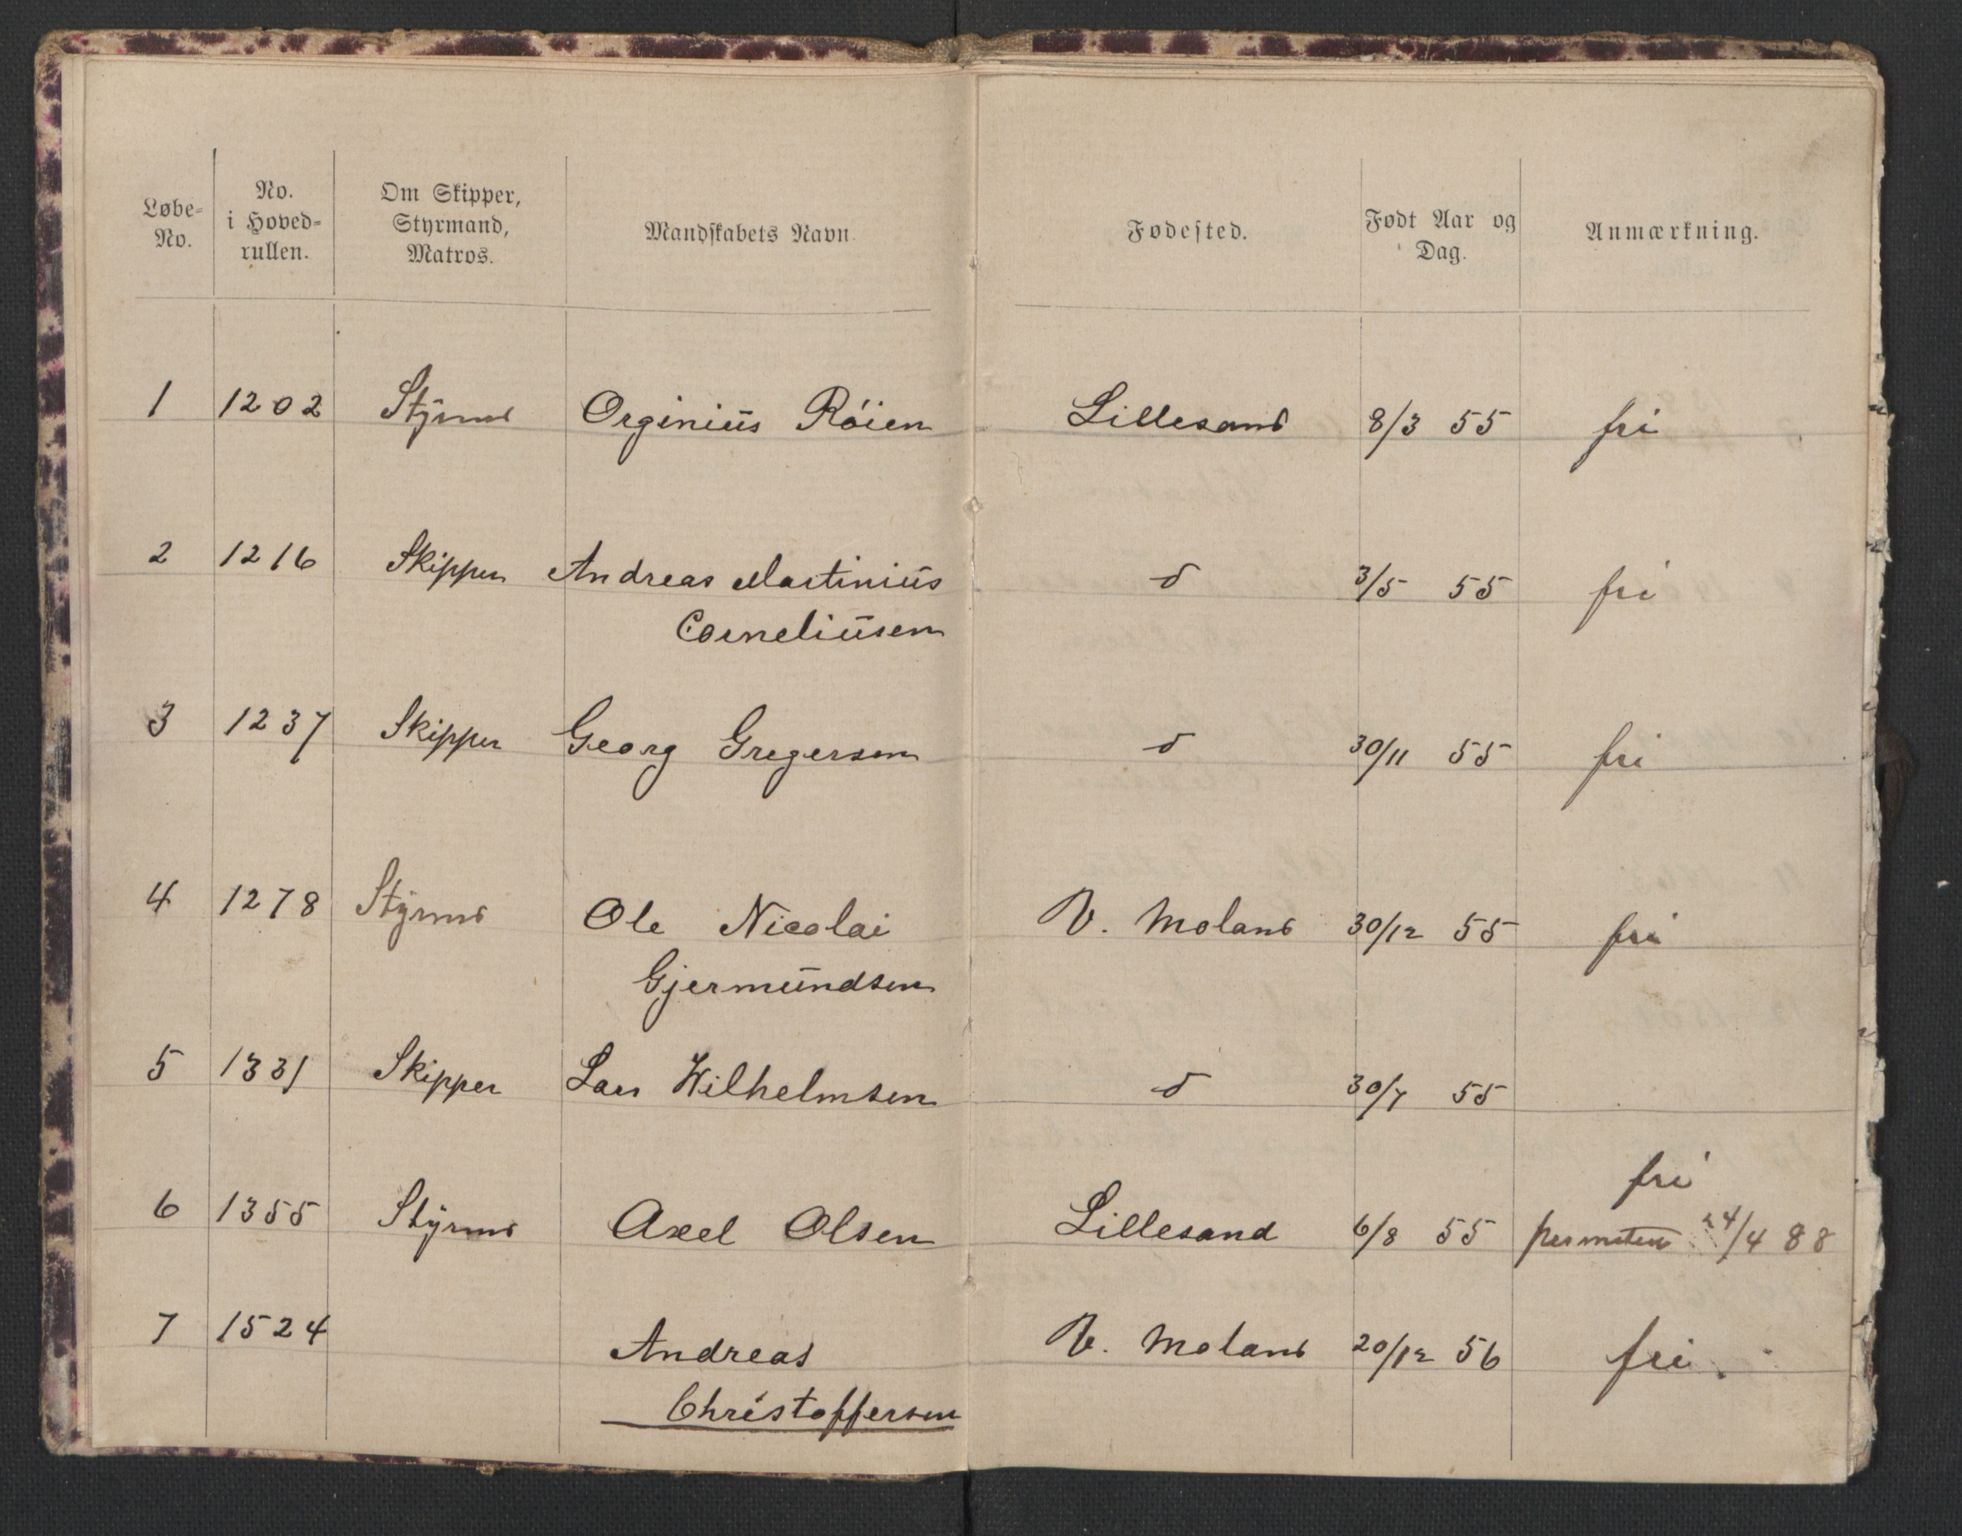 Løbe-No. No. i Hoved-rullen. Om Skipper, Styrmand, Matros. Mandskabets Navn. Fødested. Født Aar og Dag. Anmærkning.
1 1202 Styrmd Orginiŭs Röien Lillesand 8/3 55 fri
2 1216 Skipper Andreas Martiniŭs d 3/5 55 fri
Corneliŭsen
3 1237 Skipper Georg Gregersen d 30/11 55 fri
4 1278 Styrmd Ole Nicolai V. Moland 30/12 55 fri
Gjermŭndsen
5 1331 Skipper Lars Wilhelmsen d 30/7 55
fri
6 1355 Styrmd Axel Olsen Lillesand 6/8 55 24/4 88
7 1524 Andreas V. Moland 20/12 56 fri.
Christoffersen